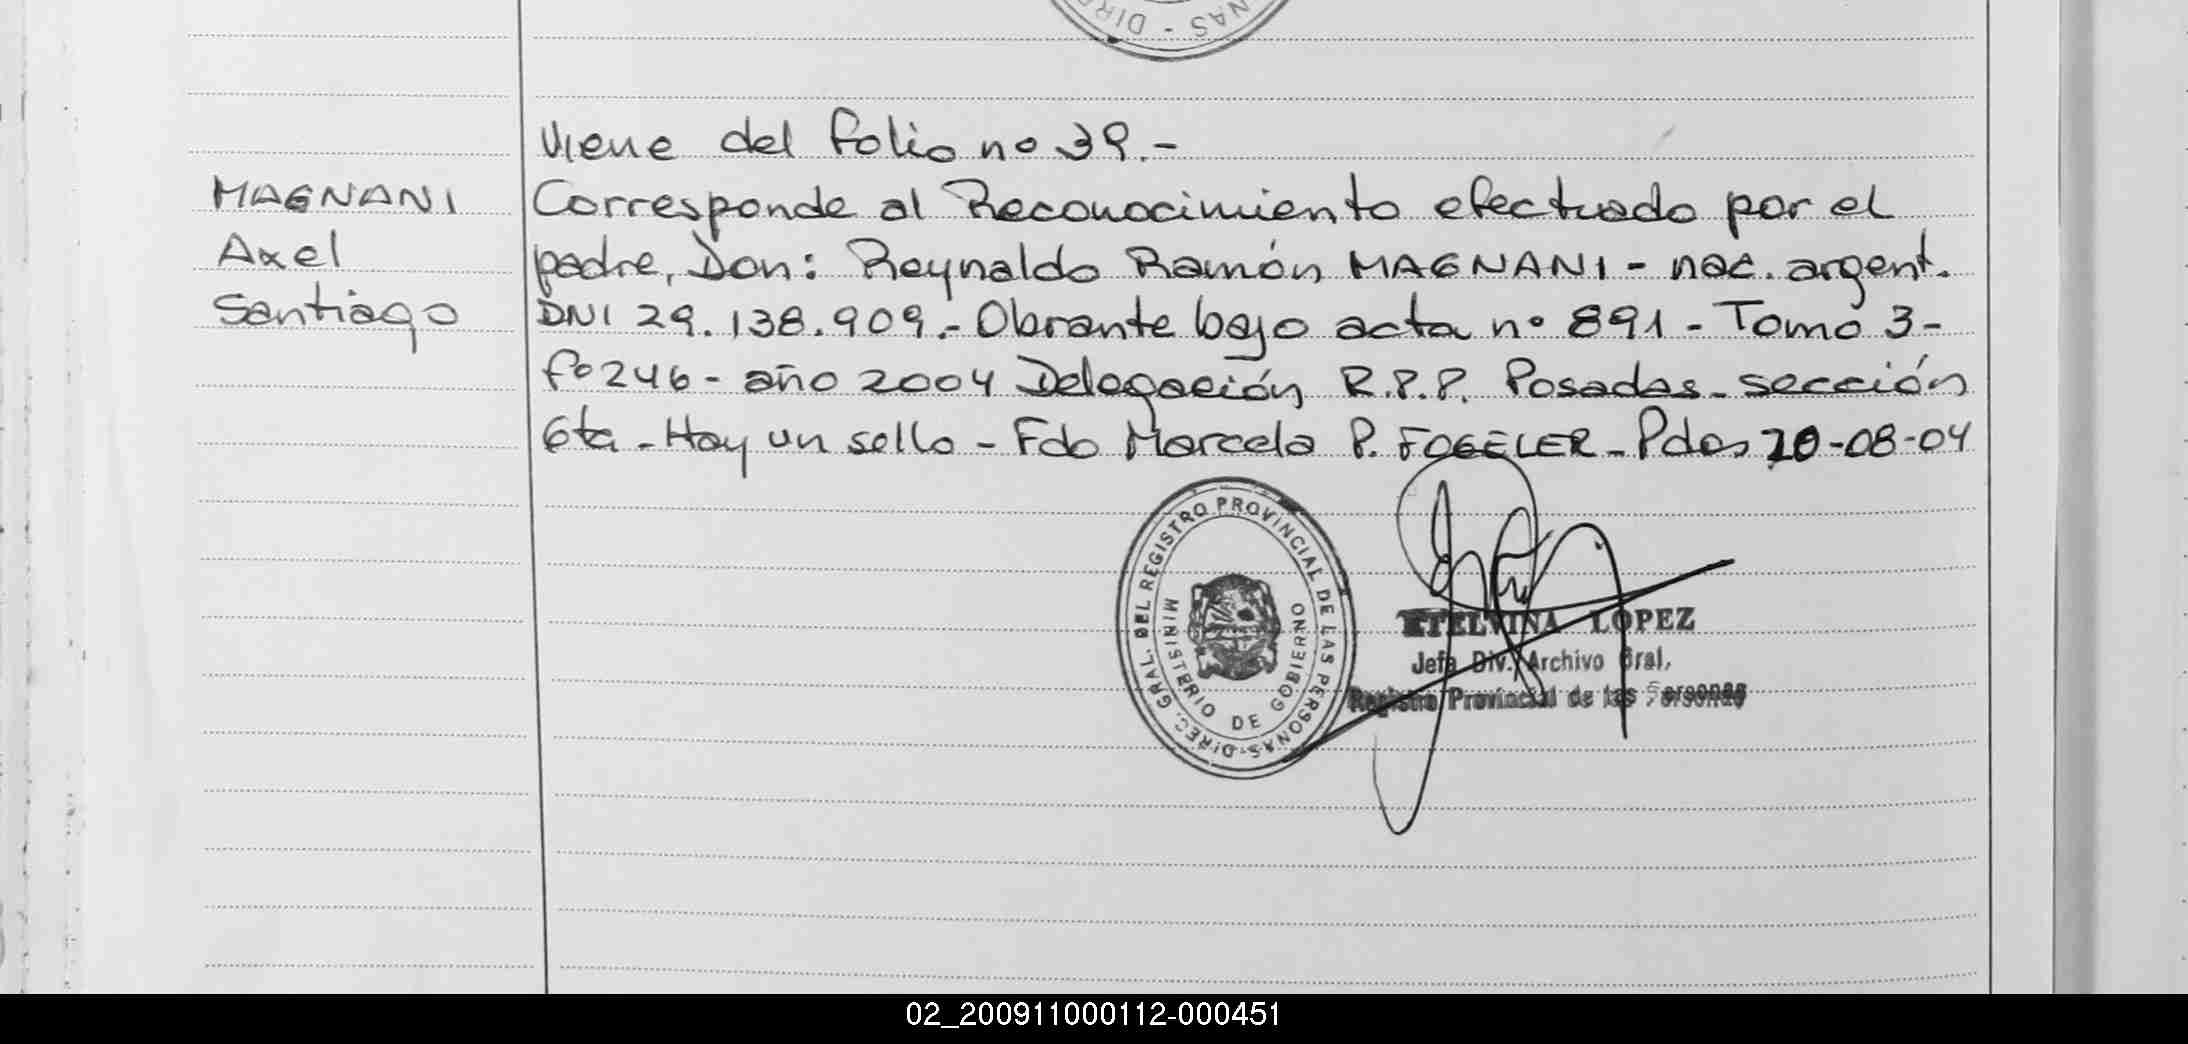 NAS - DIRE
Viene del folio nº 39.-
MAGNANI
Axel
Santiago
Corresponde al Reconocimiento efectuado por el
padre, Don: Reynaldo Ramón MAGNANI - nac. argent.
DNI 29.138.909.- Obrante bajo acta nº 891 - Tomo 3-
fº 246 - año 2004 Delegación R.P.P. Posadas - sección
6ta - Hay un sello - Fdo Marcela P. FOGELER - Pdas 20-08-04
DIREC. GRAL. DEL REGISTRO PROVINCIAL DE LAS PERSONAS-
MINISTERIO DE GOBIERNO
ETELVINA LOPEZ
Jefa Div. Archivo Gral.
Registro Provincial de las Personas
02_200911000112-000451